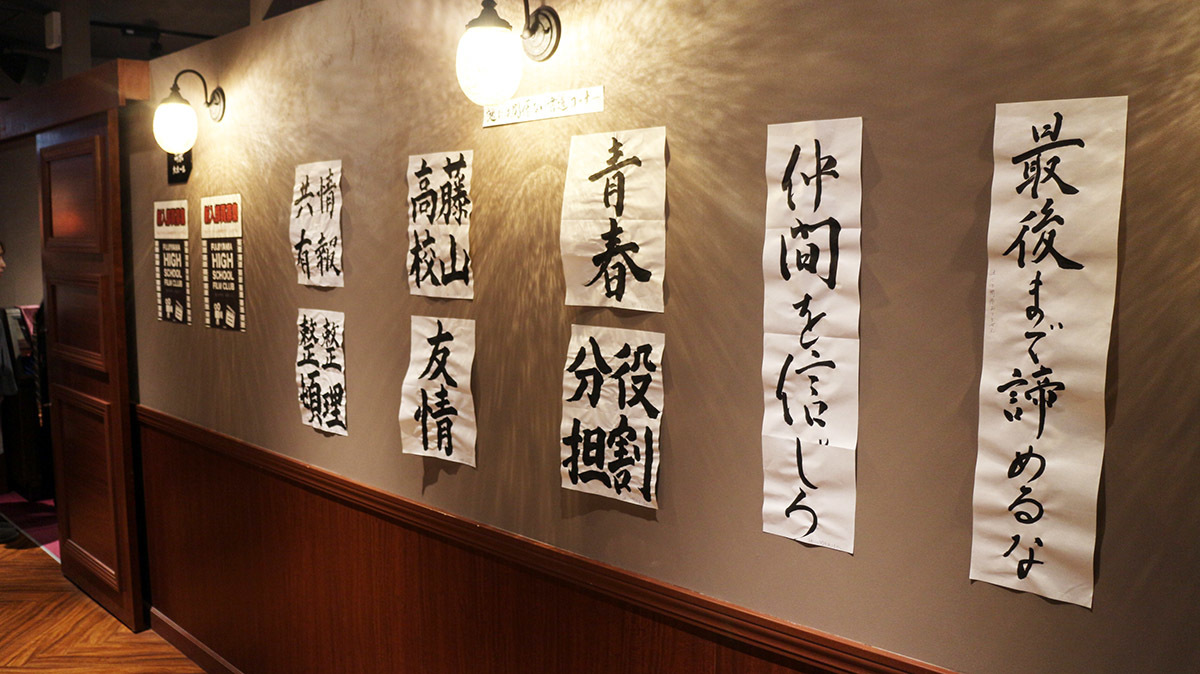 最後まで諦めるな
仲間を信じろ
青春
役割
分担
藤山
高校
友情
情報
共有
整理
整頓
FUJIYAMA
HIGH
SCHOOL
FILM CLUB
FUJIYAMA
HIGH
SCHOOL
FILM CLUB